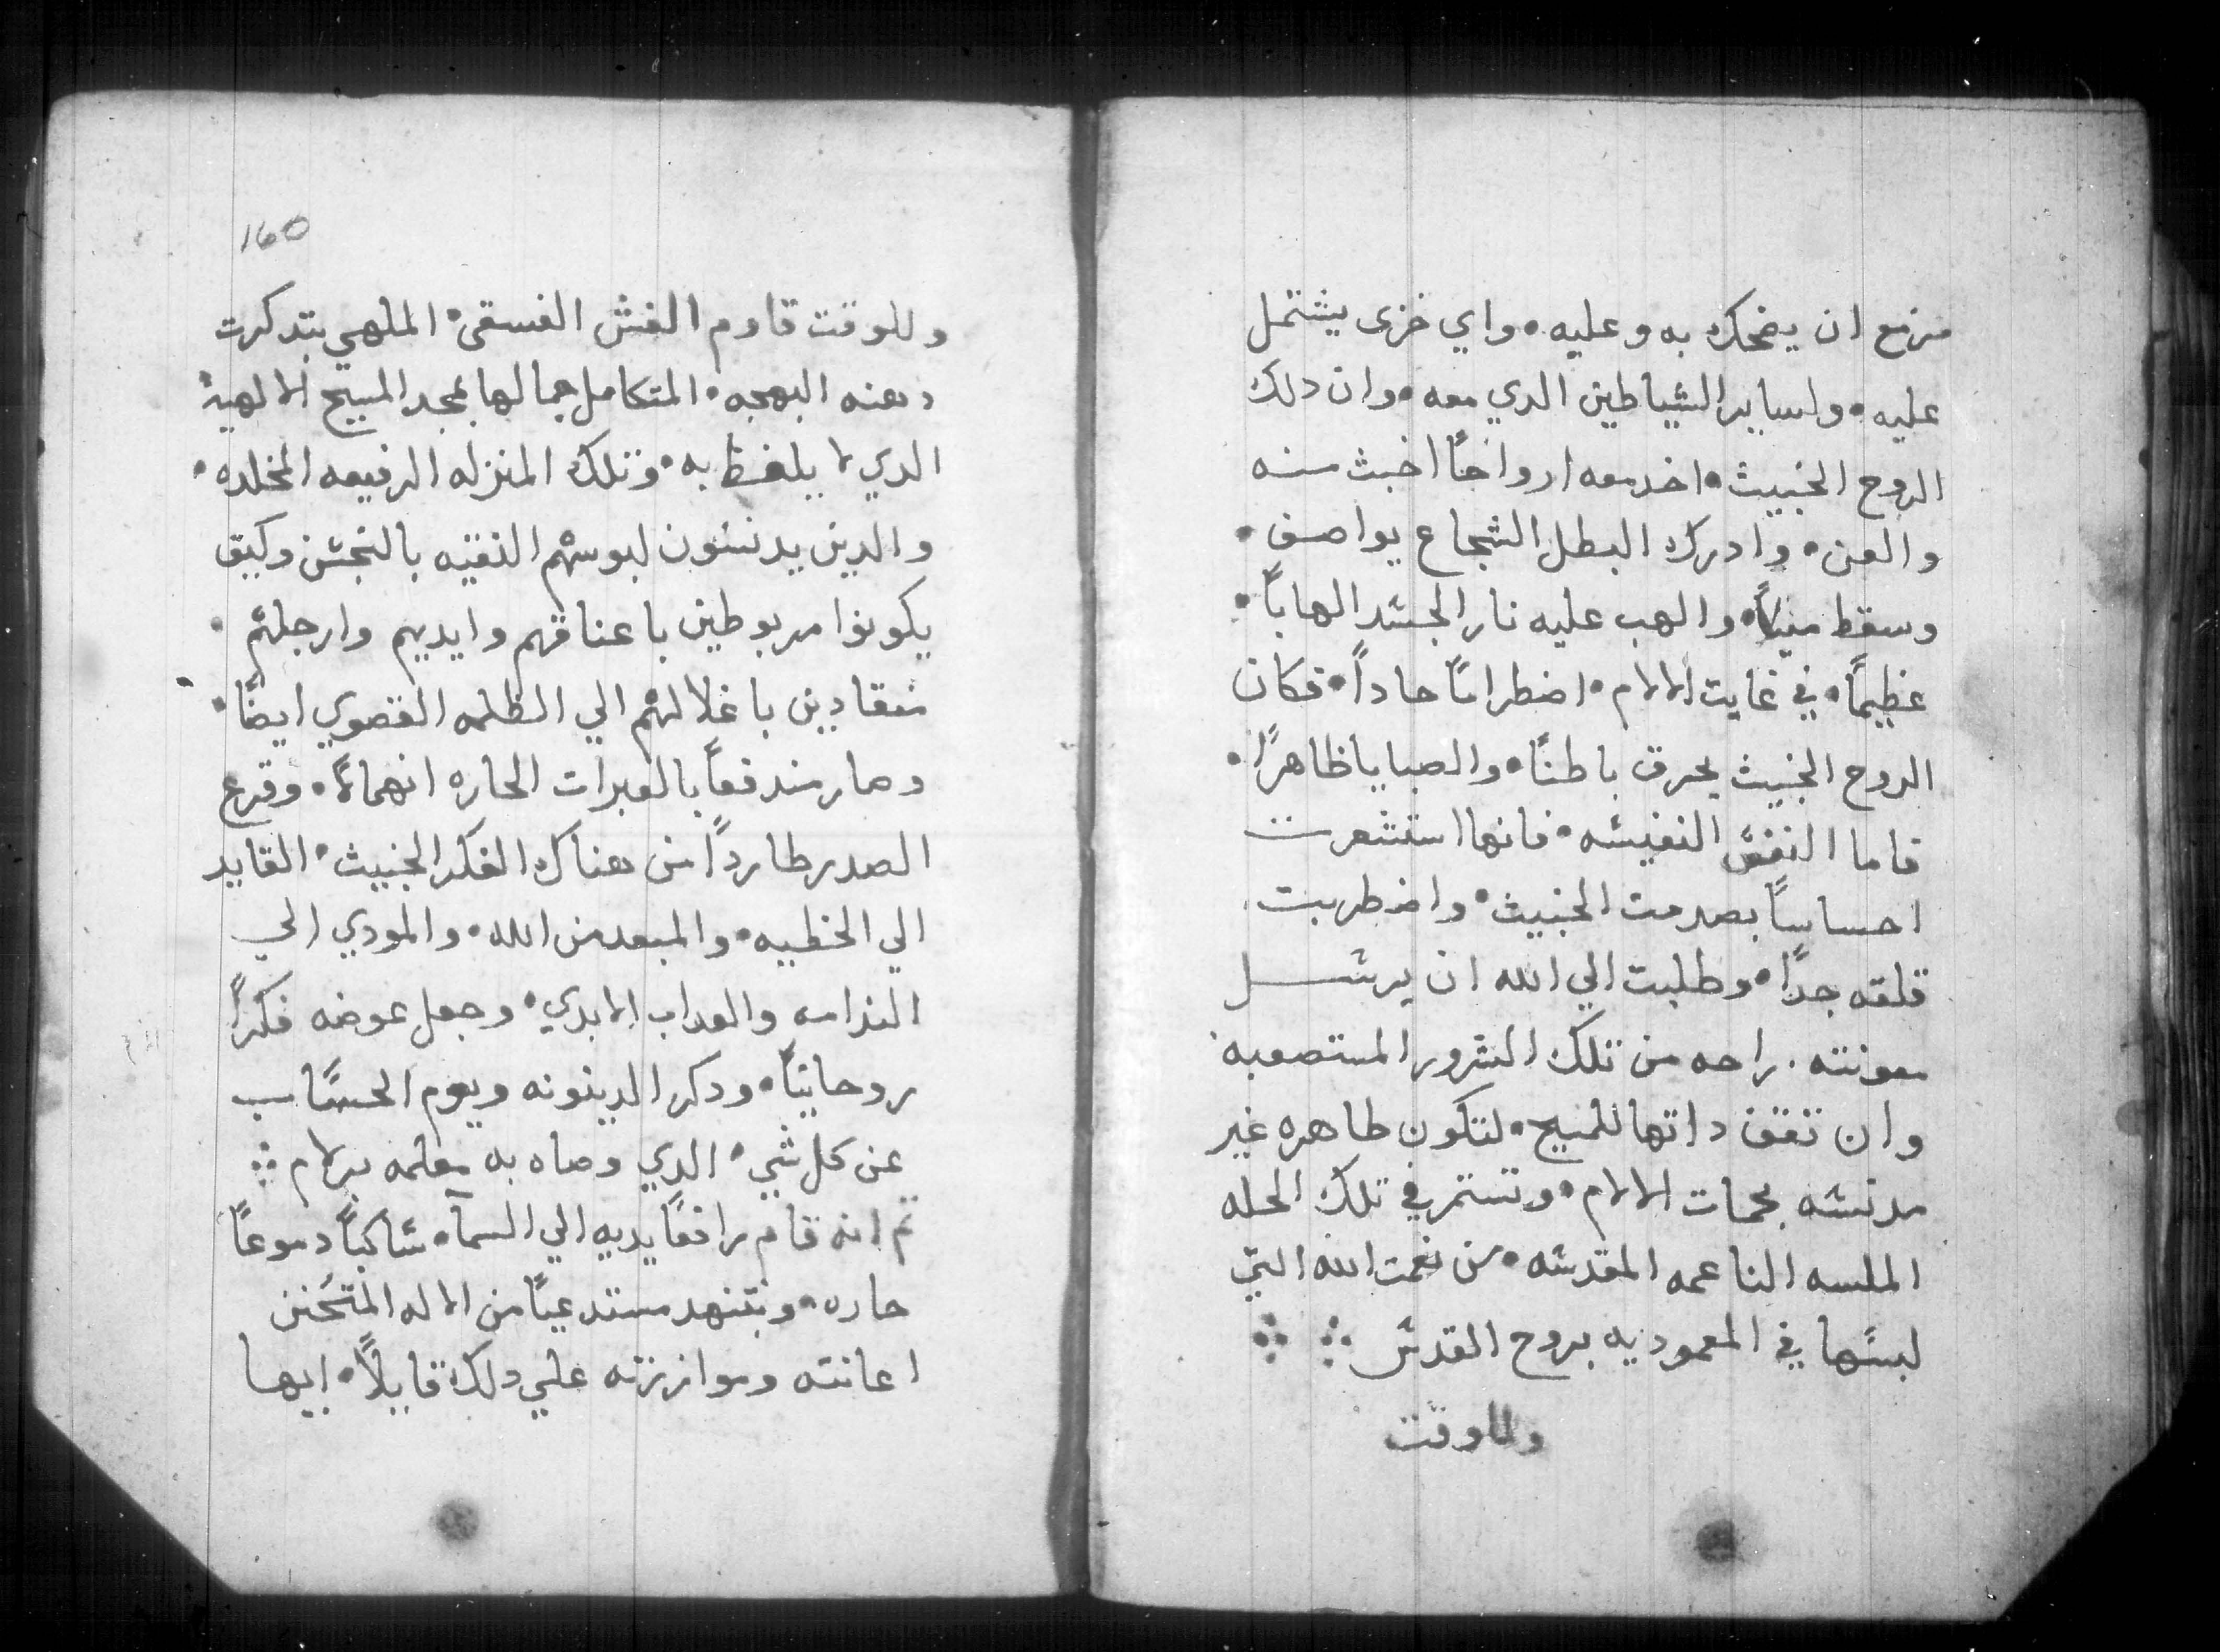 مزمع ان يضحك به وعليه • واي خزى يشتمل
عليه • ولساير الشياطين الدي معه • وان دلك
الروح الخبيث • اخد معه ارواحًا اخبث منه
والعن • وادرك البطل الشجاع يواصف •
وسقط • والهب عليه نار الجسد الهابًا •
عظيمًا • في غايت الالام • اضطرامًا حادًا • فكان
الروح الخبيث يحرق باطنًا • والصبايا ظاهرًا •
فاما النفس النفيسه • فانها استشعرت
احساسًا بصدمت الخبيث • واضطربت
قلقه جدًا • وطلبت الي الله ان يرسل
معونته • راحه من تلك الشرور المستصعبه
وان تقف داتها للمسيح • لتكون طاهره غير
مدنسه بحمات الالام • وتستمر في تلك الحله
الملسه الناعمه المقدسه • من نعمت الله التي
لبسها في المعموديه بروح القدس ∴ ∴
وللوقت
160
وللوقت قاوم العشق الفسقى • الملهي بتدكرت
دهنه البهجه • المتكامل جمالها بمجد المسيح الالهية
الدي لا يلفظ به • وتلك المنزله الرفيعه المخلده •
والدين يدنسون لبوسهم النقيه بالنجس وكيف
يكونوا مربوطين باعناقهم وايديهم وارجلهم •
منقادين باغلالهم الي الظلمه القصوي ايضًا •
وصار مندفعًا بالعبرات الحاره انهمالًا • وقرع
الصدر طاردًا من هناك الفكر الخبيث • القايد
الي الخطييه • والمبعد من الله • والمودي الي
الندامه والعداب الابدي • وجعل عوضه فكرًا
روحانيًا • ودكر الدينونه ويوم الحساب
عن كل شي • الدي وصاه به معلمه برلام ∴
تم انه قام رافعًا يديه الي السمآ • ساكبًا دموعًا
حاره • وبتنهد مستدعيًا من الاله المتحنن
اعانته وموازرته علي دلك قايلًا • ايها